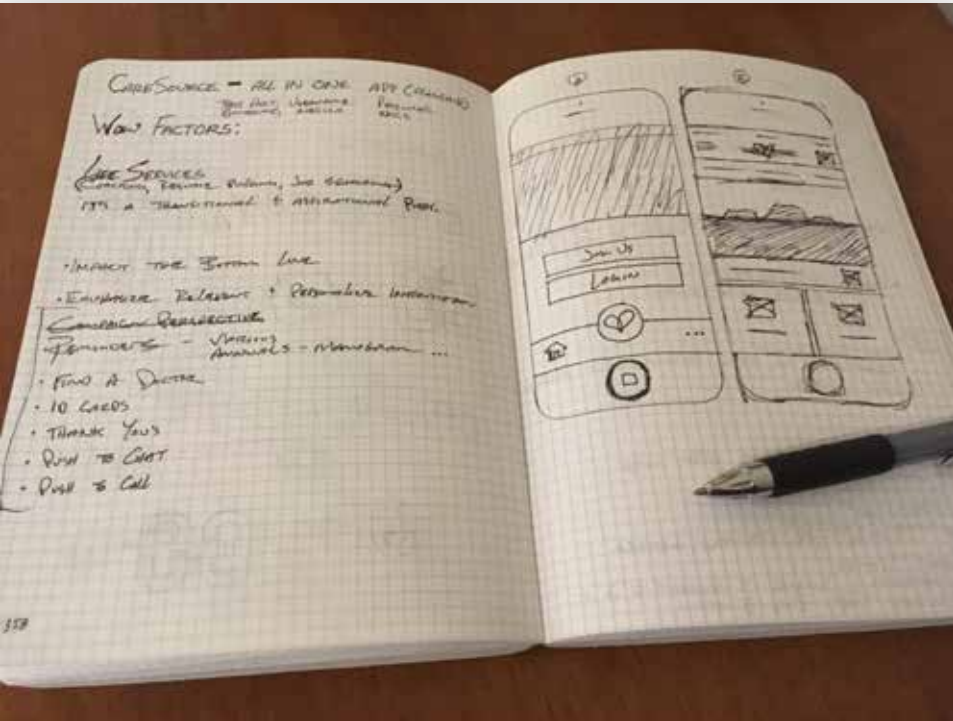 CARESOURCE - ALL IN ONE APP
WOW FACTORS:
LIFE SERVICES
(COACHING, RESUME BUILDING, JOB SEARCHING)
IT'S A TRANSITIONAL + ASPIRATIONAL
• IMPACT THE BOTTOM LINE
• EMPHASIZE RELEVANT + PERSONALIZE INFORMATION
CAMPAIGN PERSPECTIVE
REMINDERS -
ANNUALS - MAMOGRAM ...
• FIND A DOCTOR
• ID CARDS
• THANK YOUS
• PUSH TO CHAT
• PUSH TO CALL
JOIN US
LOGIN